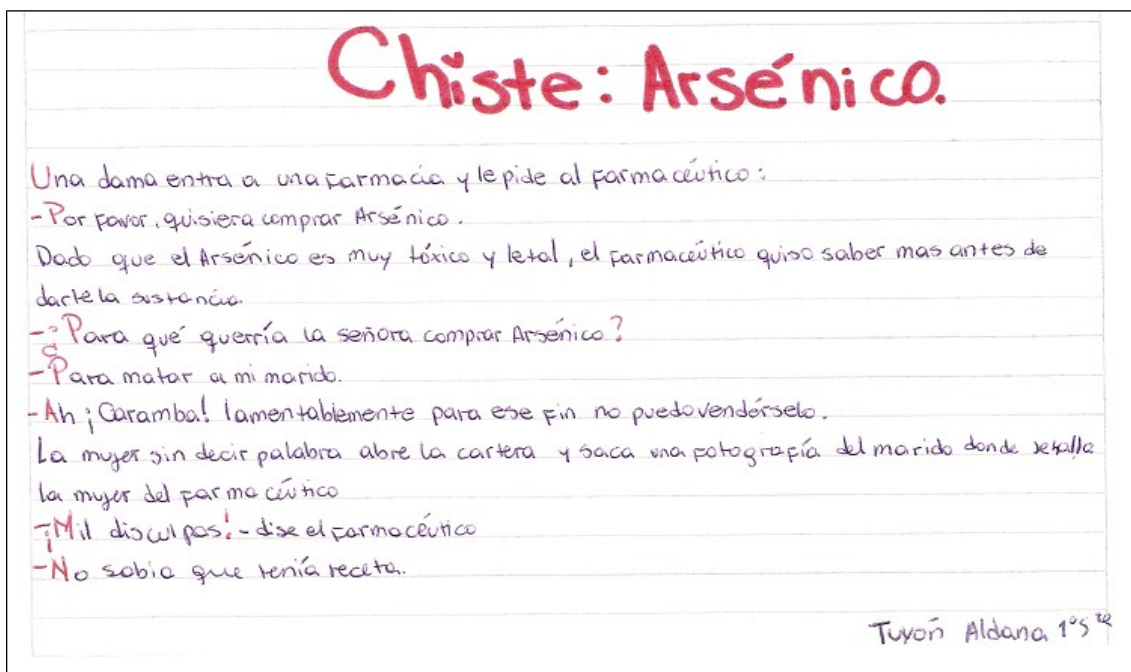 Chiste: Arsénico.
Una dama entra a una farmacia y le pide al farmacéutico:
-Por favor, quisiera comprar Arsénico.
Dado que el Arsénico es muy tóxico y letal, el farmacéutico quiso saber mas antes de
darle la sustancia.
-¿Para qué querría la señora comprar Arsénico?
-Para matar a mi marido.
-Ah ¡Caramba! lamentablemente para ese fin no puedo vendérselo.
La mujer sin decir palabra abre la cartera y saca una fotografía del marido donde
la mujer del farmacéutico
-¡Mil disculpas!-dise el farmacéutico
-No sabia que tenía receta.
Aldana 1º5